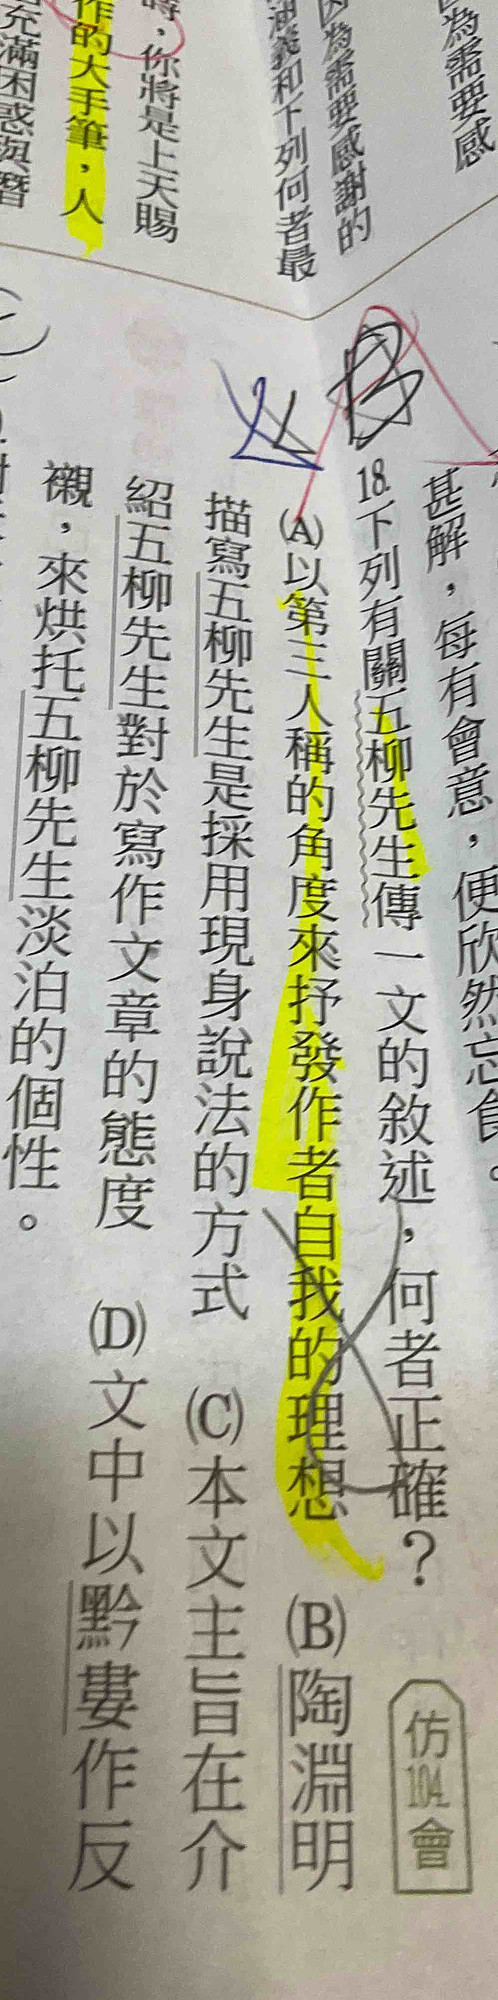 因為需要感
因為需要感謝的
涵義和下列何者最
時，你將是上天賜
作的大手筆，人
充滿困惑與
甚解，每有會意，便欣然忘食。
B
18.下列有關五柳先生傳一文的敘述，何者正確？
仿104.會
(A)以第三人稱的角度來抒發作者自我的理想 (B)陶淵明
描寫五柳先生是採用現身說法的方式 (C)本文主旨在介
紹五柳先生對於寫作文章的態度 (D)文中以黔婁作反
襯，來烘托五柳先生淡泊的個性。